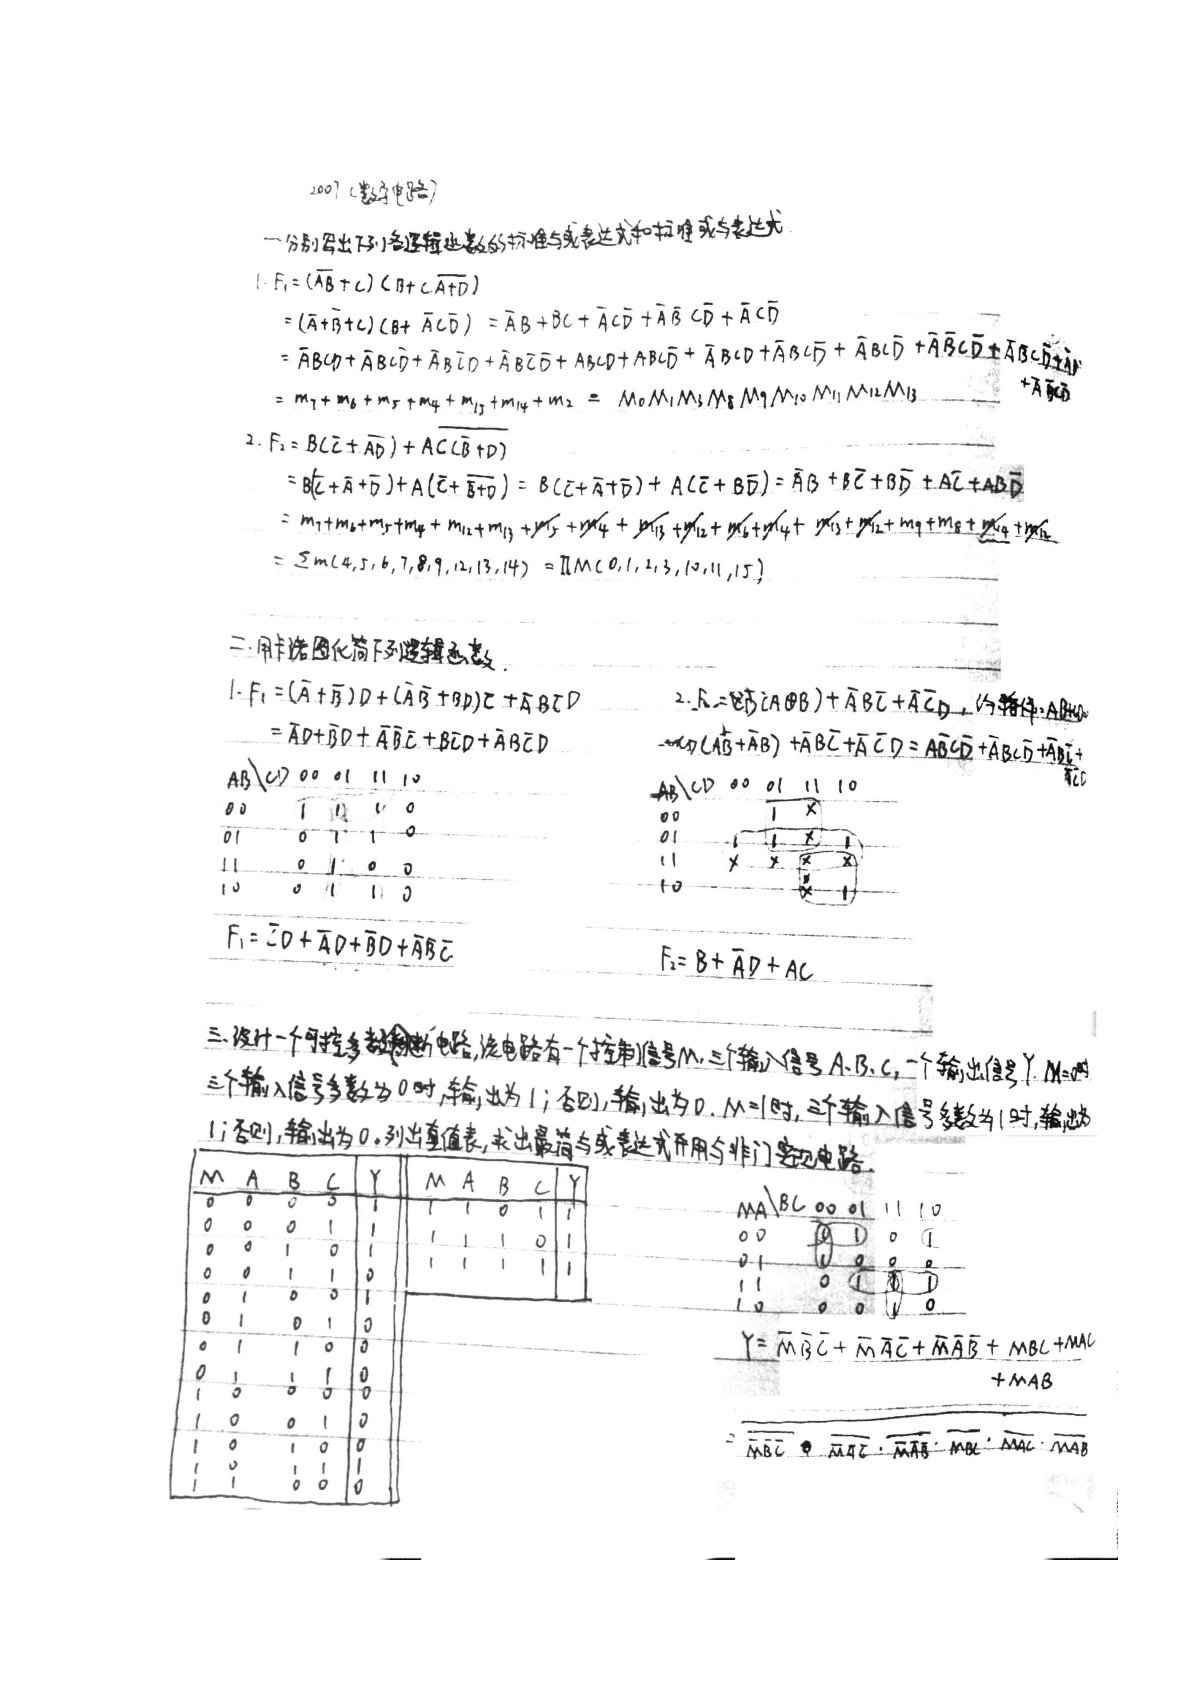 2007（数字电路）
一分别写出下列各逻辑函数的标准与或表达式和标准或与表达式.
1. F₁=(A̅B̅+C)(B+CA̅+̅D̅)
=(A̅+B̅+C)(B+A̅CD̅) =A̅B+BC+A̅CD̅+A̅B̅CD̅+A̅CD̅
=A̅BCD+A̅BCD̅+A̅BC̅D+A̅BC̅D̅+ABCD+ABCD̅+A̅BCD+A̅BCD̅+A̅BCD̅+A̅B̅CD̅+A̅B̅CD̅
+A̅B̅CD̅
= m₇+m₆+m₅+m₄+m₁₅+m₁₄+m₂ = M₀M₁M₃M₈M₉M₁₀M₁₁M₁₂M₁₃
2. F₂=B(C̅+A̅D̅)+AC̅(̅B̅+̅D̅)̅
=B(C̅+A̅+D̅)+A(C̅+B̅+̅D̅) = B(C̅+A̅+D̅)+A(C̅+BD̅)=A̅B+BC̅+BD̅+AC̅+ABD̅
= m₇+m₆+m₅+m₄+m₁₂+m₁₃+m₅+m₄+m₁₃+m₁₂+m₆+m₄+m₁₃+m₁₂+m₉+m₈+m₁₄+m₁₂
= Σm(4,5,6,7,8,9,12,13,14) =ΠM(0,1,2,3,10,11,15)
二.用卡诺图化简下列逻辑函数.
1. F₁=(A̅+B̅)D+(A̅B̅+BD)C̅+A̅BC̅D
=A̅D+B̅D+A̅B̅C̅+BC̅D+A̅BC̅D
AB\CD 00 01 11 10
00 1 1 1 0
01 0 1 1 0
11 0 1 0 0
10 0 1 1 0
F₁=C̅D+A̅D+B̅D+A̅B̅C̅
2. F₂=CD̅(A⊕B)+A̅BC̅+A̅C̅D, 约束条件:AB+CD=0
CD̅(AB̅+A̅B)+A̅BC̅+A̅C̅D=AB̅CD̅+A̅BCD̅+A̅BC̅+
A̅C̅D
AB\CD 00 01 11 10
00 1 x
01 1 1 x 1
11 x x x x
10 x 1
F₂=B+A̅D+AC
三.设计一个可控多数判断电路,该电路有一个控制信号M,三个输入信号A.B.C,一个输出信号Y.M=0时
三个输入信号多数为0时,输出为1;否则,输出为0.M=1时,三个输入信号多数为1时,输出为
1;否则,输出为0.列出真值表,求出最简与或表达式并用与非门实现电路.
M A B C Y
0 0 0 0 1
0 0 0 1 1
0 0 1 0 1
0 0 1 1 0
0 1 0 0 1
0 1 0 1 0
0 1 1 0 0
0 1 1 1 0
1 0 0 0 0
1 0 0 1 0
1 0 1 0 0
1 0 1 1 1
1 1 0 0 0
M A B C Y
1 1 0 1 1
1 1 1 0 1
1 1 1 1 1
MA\BC 00 01 11 10
00 1 1 0 1
01 1 0 0 0
11 0 1 1 1
10 0 0 1 0
Y=M̅B̅C̅+M̅A̅C̅+M̅A̅B̅+MBC+MAC
+MAB